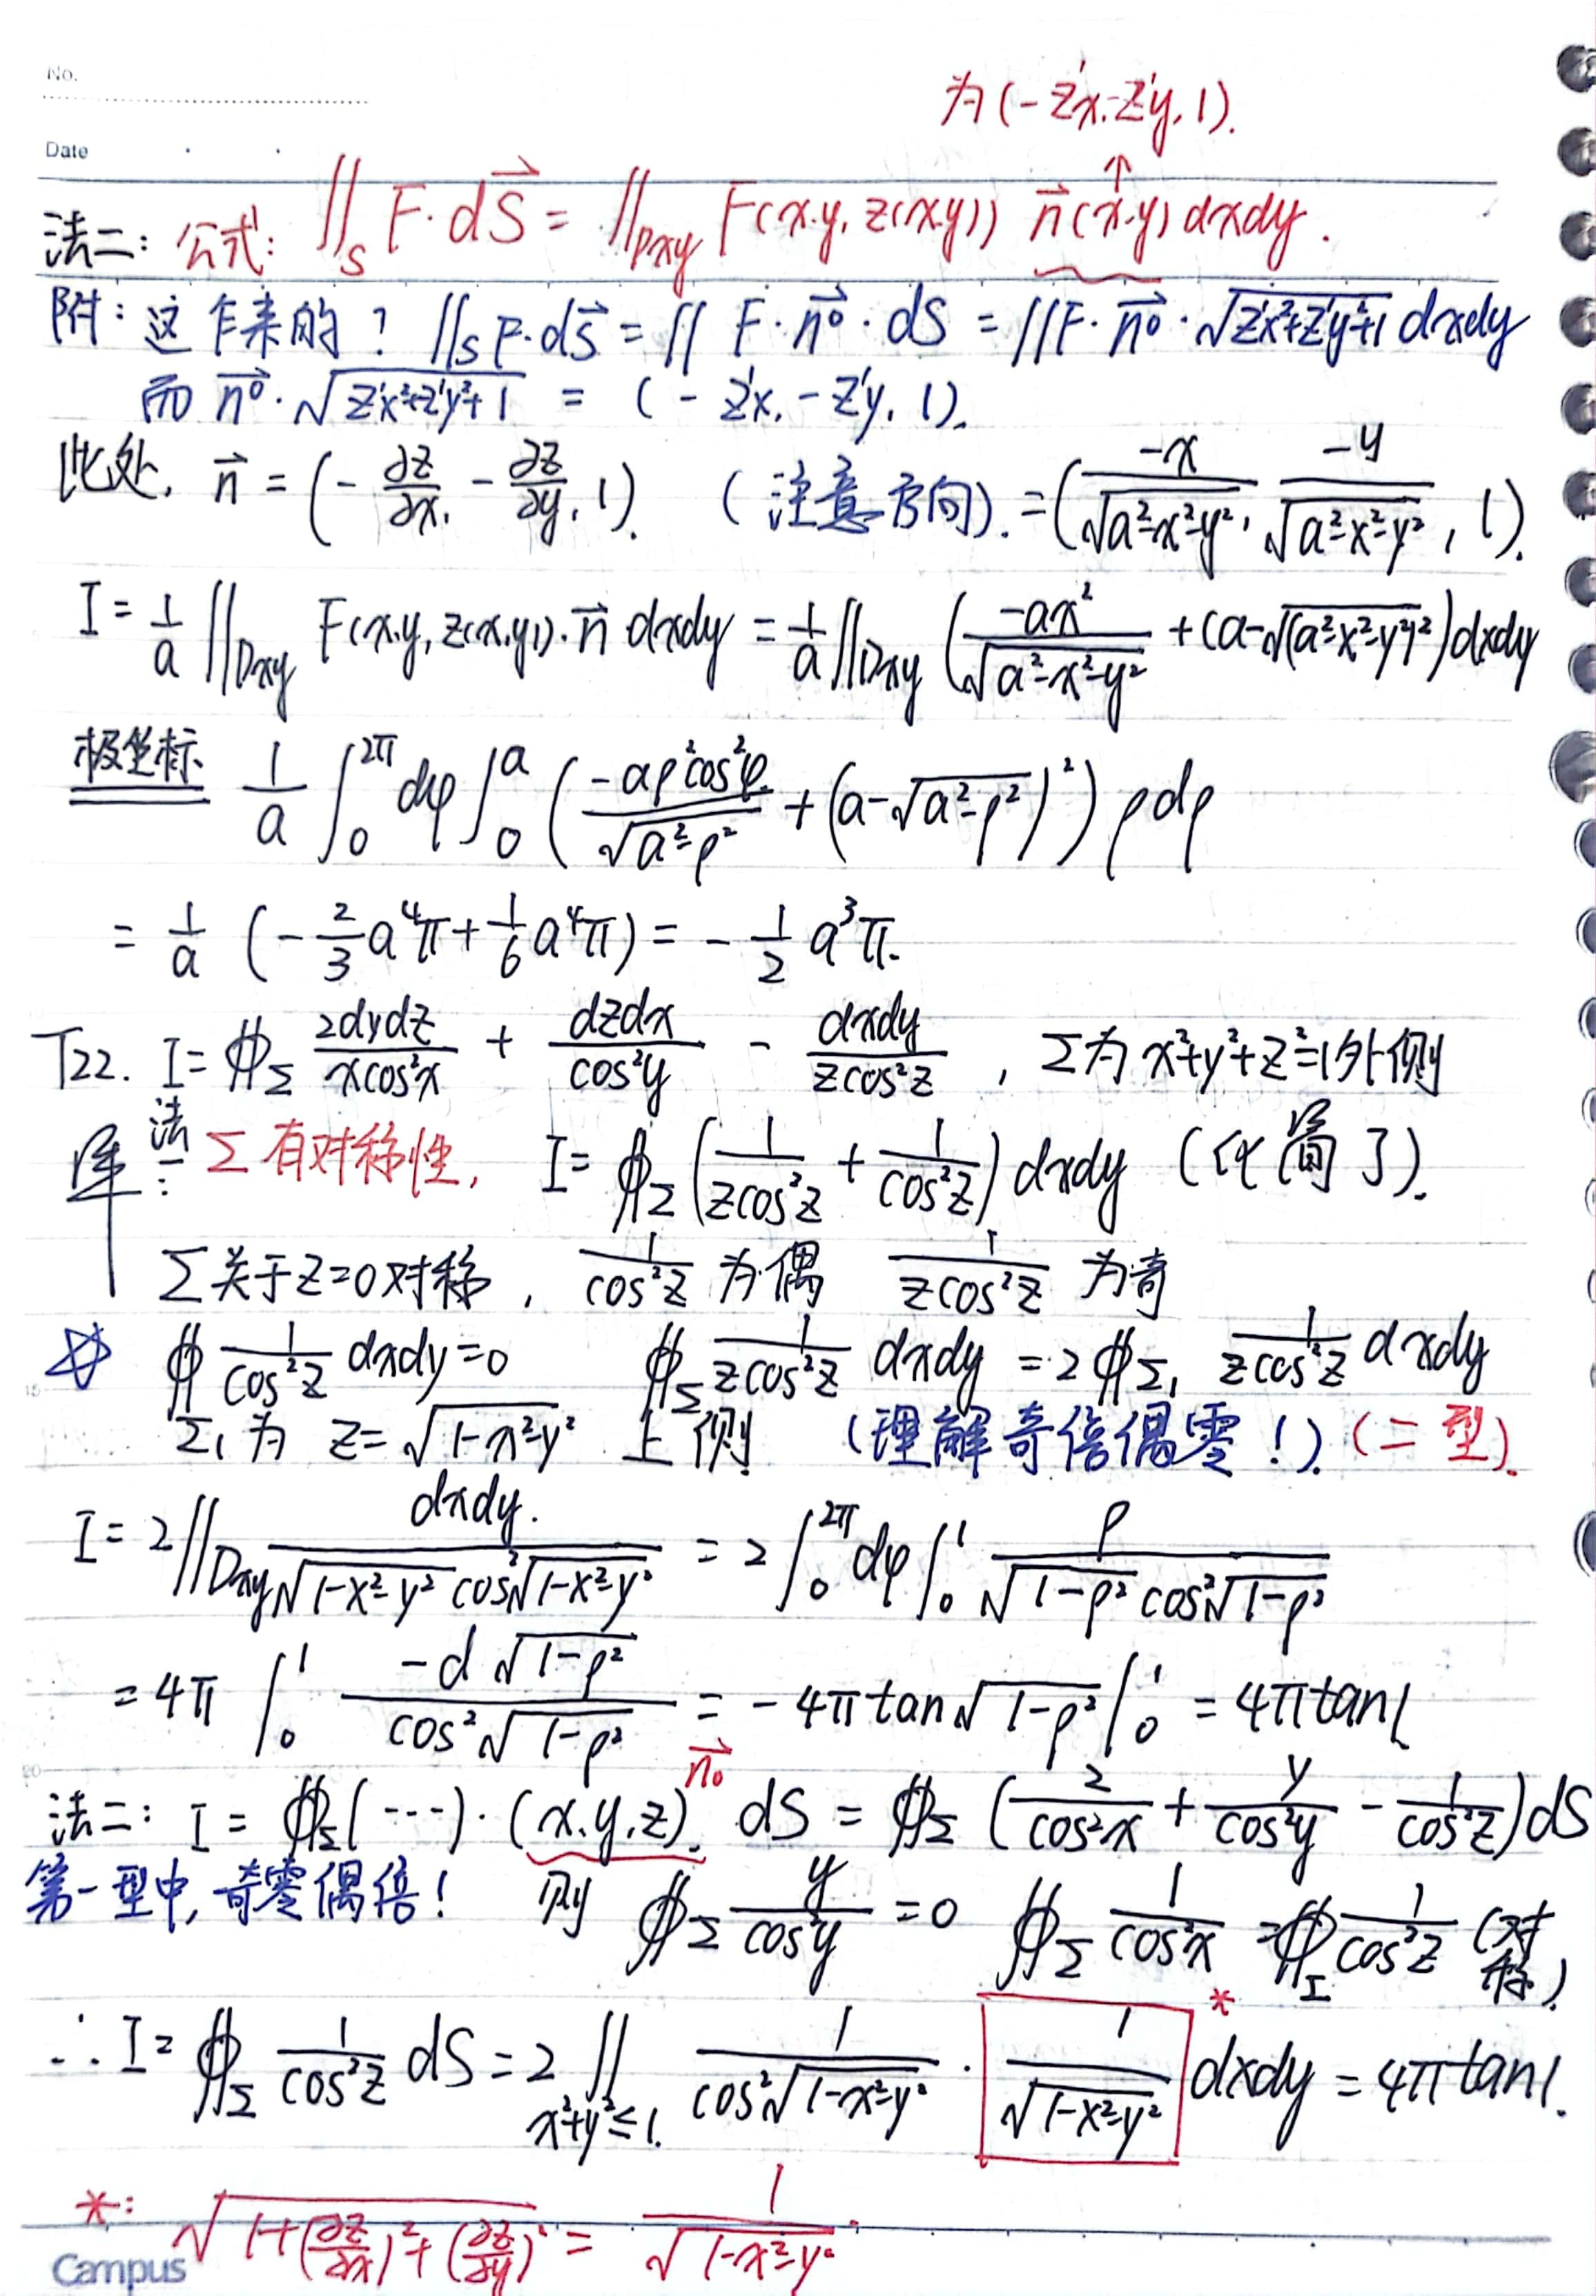 No.
为(-z'x.-z'y,1).
Date
↑
法二: 公式: ∬_S F·dS⃗ = ∬_Dxy F(x.y, z(x.y)) n⃗(x.y) dxdy.
附: 这乍来的? ∬_S F·dS⃗ = ∬ F·n⃗⁰·dS = ∬F·n⃗⁰·√(z'x²+z'y²+1) dxdy
而 n⃗⁰·√(z'x²+z'y²+1) = (-z'x, -z'y, 1).
此处, n⃗ = (-∂z/∂x, -∂z/∂y, 1). (注意方向). = (-x/√(a²-x²-y²), -y/√(a²-x²-y²), 1).
I = 1/a ∬_Dxy F(x.y, z(x,y))·n⃗ dxdy = 1/a ∬_Dxy (-ax²/√(a²-x²-y²) + (a-√(a²-x²-y²))²) dxdy
极坐标 1/a ∫₀^2π dφ ∫₀^a (-aρ²cos²φ/√(a²-ρ²) + (a-√(a²-ρ²))²) ρdρ
= 1/a (-2/3 a⁴π + 1/6 a⁴π) = -1/2 a³π.
T22. I = ∯_Σ 2dydz/(xcos²x) + dzdx/cos²y - dxdy/(zcos²z), Σ为x²+y²+z²=1外侧
解 法一: Σ有对称性, I = ∯_Σ (1/(zcos²z) + 1/cos²z) dxdy (化简了).
Σ关于z=0对称, 1/cos²z 为偶 1/(zcos²z) 为奇
☆ ∯ 1/cos²z dxdy=0 ∯_Σ 1/(zcos²z) dxdy = 2∯_Σ₁ 1/(zcos²z) dxdy
Σ₁为 z=√(1-x²-y²) 上侧 (理解奇倍偶零!) (二型).
I = 2∬_Dxy dxdy./(√(1-x²-y²) cos²√(1-x²-y²)) = 2∫₀^2π dφ ∫₀^1 ρ/(√(1-ρ²) cos²√(1-ρ²))
= 4π ∫₀^1 -d√(1-ρ²)/cos²√(1-ρ²) = -4π tan√(1-ρ²) |₀^1 = 4πtan1
n⃗₀
法二: I = ∯_Σ(…)·(x.y.z). dS = ∯_Σ (2/cos²x + y/cos²y - 1/cos²z) dS
第一型中, 奇零偶倍! 则 ∯_Σ y/cos²y = 0 ∯_Σ 1/cos²x = ∯_Σ 1/cos²z (对称)
∴ I = ∯_Σ 1/cos²z dS = 2 ∬_{x²+y²≤1.} 1/cos²√(1-x²-y²) · 1/√(1-x²-y²) * dxdy = 4πtan1.
*: √(1+(∂z/∂x)²+(∂z/∂y)²) = 1/√(1-x²-y²).
Campus